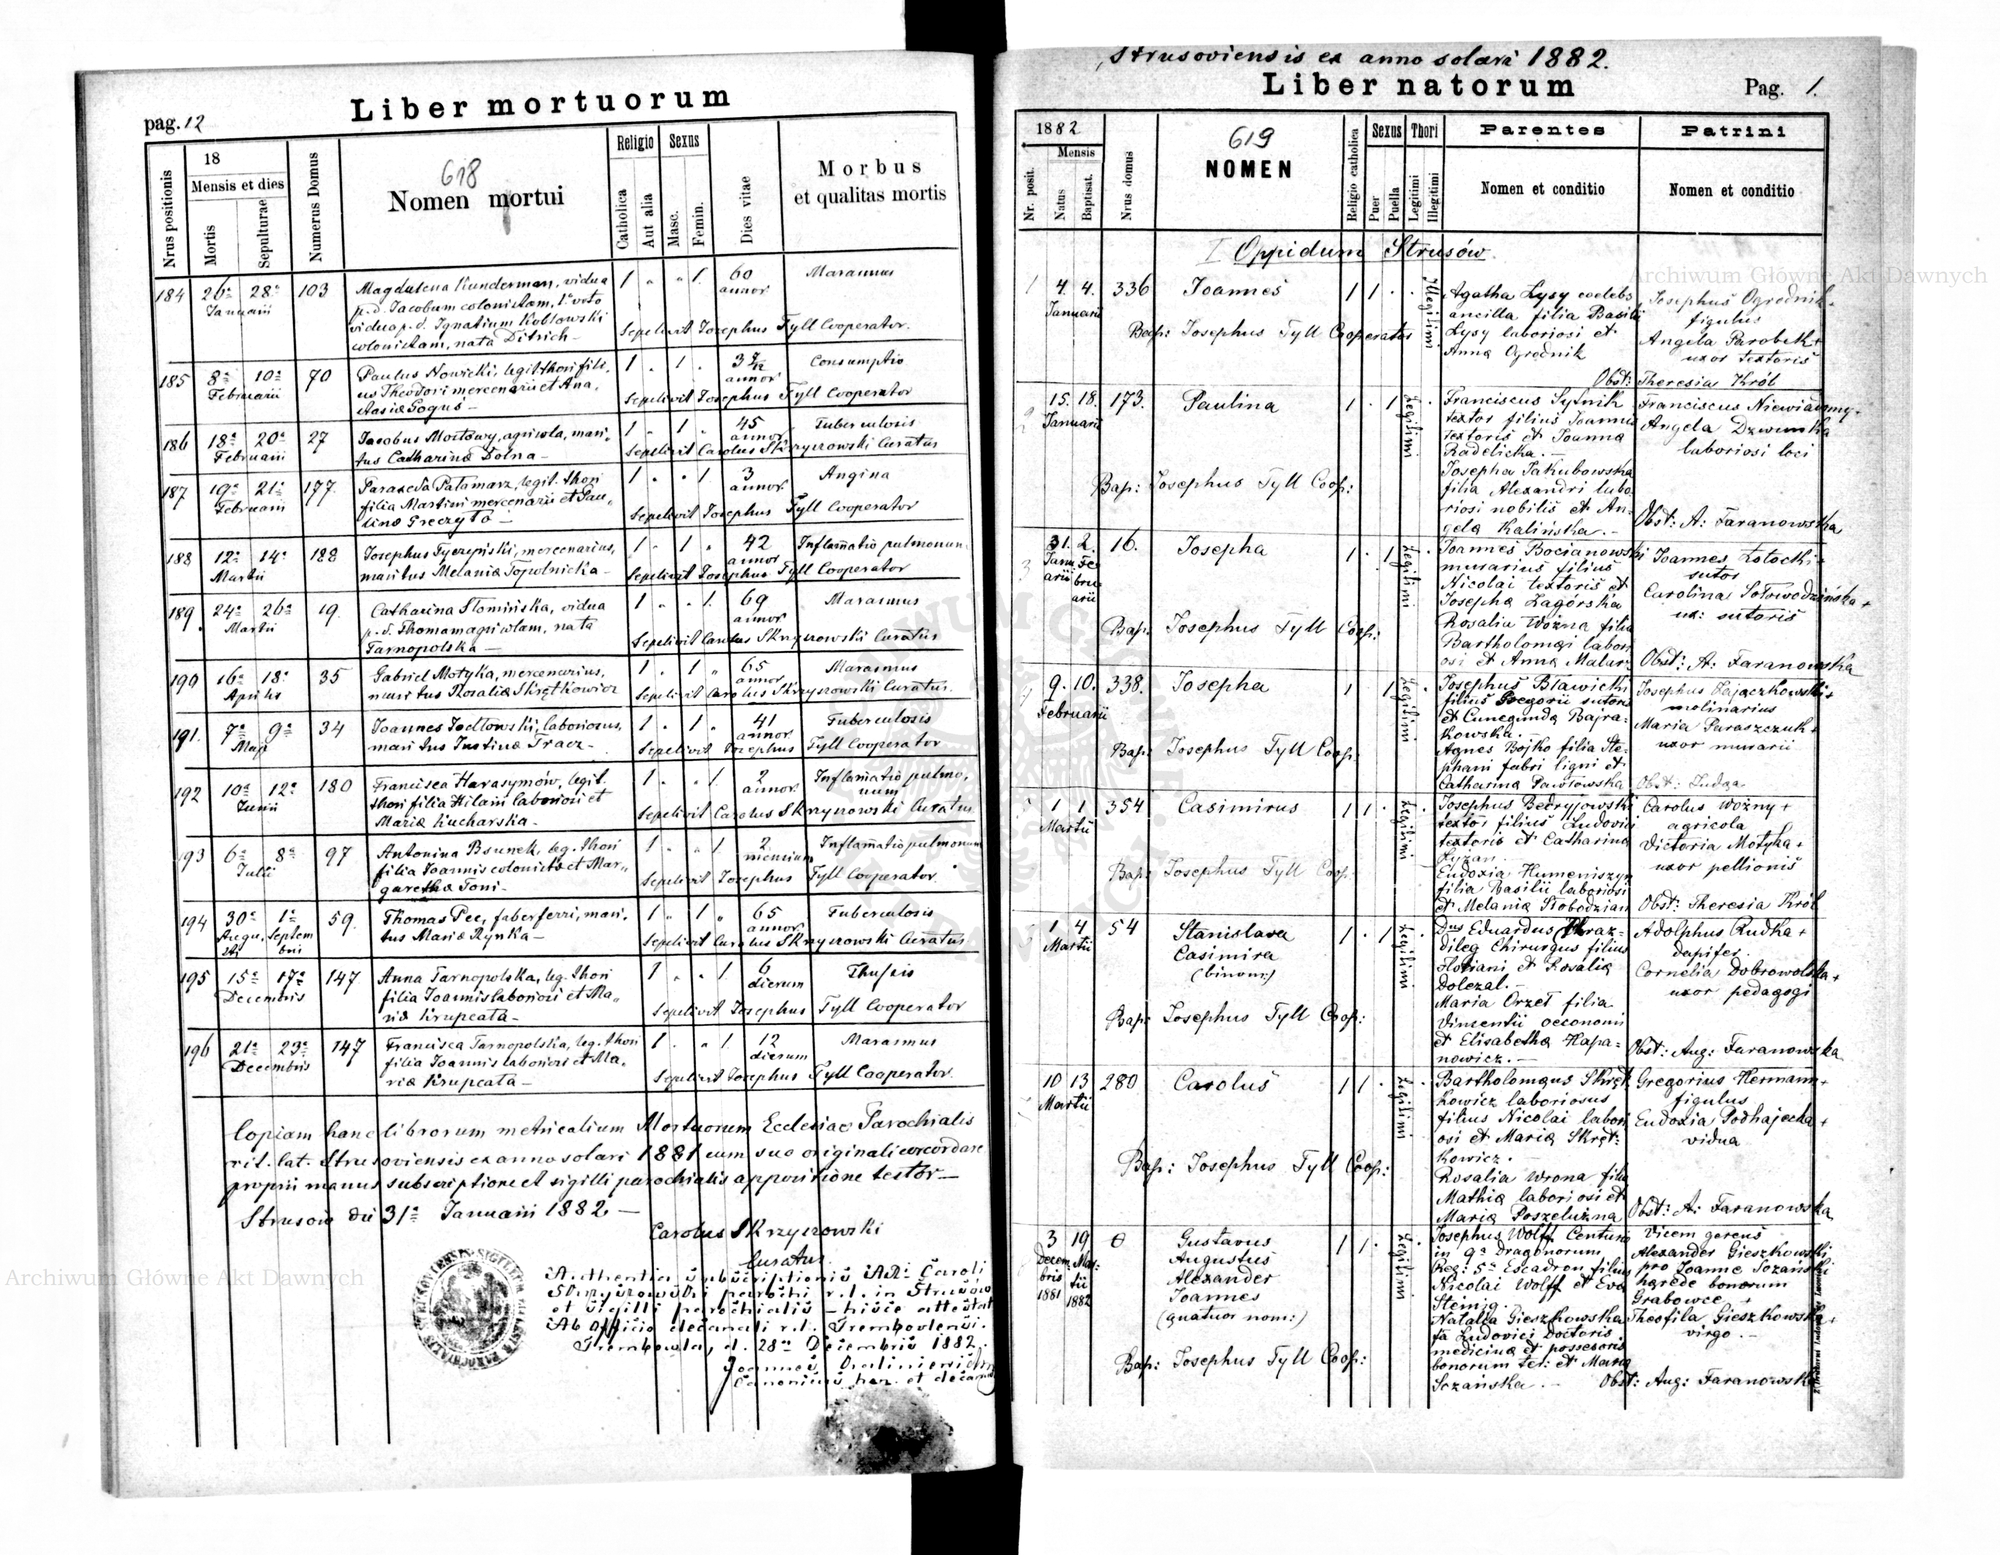 Liber mortuorum
pag. 12
Nrus positionis
18
Mensis et dies
Mortis
Sepulturae
Numerus Domus
618
Nomen mortui
Religio
Catholica
Aut alia
Sexus
Masc.
Femin.
Dies vitae
Morbus
et qualitas mortis
184 26a 28a 103 Magdalena Kunderman, vidua 1 „ „ 1. 60 Marasmus
Januarii p. d. Jacobum colonistam, 1o voto annor
vidua p. d. Ignatium Kobłowski Sepelivit Josephus Tyll Cooperator.
colonistam, nata Ditrich –
185 8a 10a 70 Paulus Nowicki, legit. thori fili- 1 . 1 . 3 Consumptio
Februarii us Theodori mercenarii et Ana, annor
stasiæ Goguś – Sepelivit Josephus Tyll Cooperator
186 18a 20a 27 Jacobus Mostowy, agricola, mari, 1 „ 1 „ 45 Tuberculosis
Februarii tus Catharinæ Dolna – annor
Sepelivit Carolus Skrzyszowski Curatus
187 19a 21a 177. Parasceva Patamarz, legit. thori 1 „ „ 1 3 Angina
Februarii filia Martini mercenarii et Pau, annor
linæ Greczyło – Sepelivit Josephus Tyll Cooperator
188 12a 14a 188 Josephus Tyczyński, mercenarius, 1 „ 1 „ 42 Inflamatio pulmonum
Martii maritus Melaniæ Topolnicka – annor
Sepelivit Josephus Tyll Cooperator
189 24a 26a 19. Catharina Słomińska, vidua 1 „ „ 1. 69 Marasmus
Martii p. d. Thomam agricolam, nata annor
Tarnopolska – Sepelivit Carolus Skrzyszowski Curatus
190 16a 18a 35 Gabriel Motyka, mercenarius, 1 „ 1 „ 65 Marasmus
Aprilis maritus Rosaliæ Skrętkowicz annor
Sepelivit Carolus Skrzyszowski Curatus.
191. 7a 9a 34 Joannes Jodłowski, laboriosus, 1 „ 1 „ 41 Tuberculosis
Maji maritus Justinæ Tracz – annor
Sepelivit Josephus Tyll Cooperator
192 10a 12a 180 Francisca Harasymów, legit. 1 „ „ 1. 2 Inflamatio pulmo,
Junii thori filia Hilarii laboriosi et annor num
Mariæ Kucharska – Sepelivit Carolus Skrzyszowski Curatus
193 6a 8a 97 Antonina Bsunek, leg. thori 1 „ „ 1 2 Inflamatio pulmonum
Julii filia Joannis colonistæ et Mar, mensium
garethæ Toni – Sepelivit Josephus Tyll Cooperator.
194 30a 1a 59. Thomas Pec, faber ferri, mari, 1 „ 1 „ 65 Tuberculosis
Augu, Septem tus Mariæ Rynka – annor
sti bris Sepelivit Carolus Skrzyszowski Curatus
195 15a 17a 147 Anna Tarnopolska, leg. thori 1 „ „ 1 6 Thussis
Decembris filia Joannis laboriosi et Ma, dierum
riæ Krupcata – Sepelivit Josephus Tyll Cooperator
196 21a 23a 147 Francisca Tarnopolska, leg. thori 1. „ „ 1 12 Marasmus
Decembris filia Joannis laboriosi et Ma, dierum
riæ Krupcata – Sepelivit Josephus Tyll Cooperator.
Copiam hanc librorum metricalium Mortuorum Ecclesiae Parochialis
rit. lat. Strusoviensis ex anno solari 1881 cum suo originali concordare
proprii manus subscriptione et sigilli parochialis appositione testor –
Strusow die 31a Januarii 1882. –
Carolus Skrzyszowski
Curatus
Authentia subscriptionis ADi Caroli
Skrzyszowski parochi r. l. in Strusów
et sigilli parochialis hisce attestat
Ab Officio decanali r. l. Trembovlensi.
Trembowla, d. 28a Decembris 1882.
Joannes
Canonicus hon. et decanus
Strusoviensis ex anno solari 1882.
Liber natorum
Pag. 1.
Nr. posit.
1882
Mensis
Natus
Baptisat.
Nrus domus
619
NOMEN
Religio catholica
Sexus
Puer
Puella
Thori
Legitimi
Illegitimi
Parentes
Nomen et conditio
Patrini
Nomen et conditio
I Oppidum Strusów.
1 4. 4. 336 Joannes 1 1 . . Illegitimi Agatha Łysy coelebs Josephus Ogrodnik +
Januarii ancilla filia Basilii figulus
Bap: Josephus Tyll Cooperator Łysy laboriosi et Angela Parobek +
Anna Ogrodnik uxor textoris
Obst: Theresia Król
2 15. 18. 173. Paulina 1 . 1 Legitimi . Franciscus Sytnik Franciscus Niewiadomy.
Januarii textor filius Joannis Angela Dzwinka
textoris et Joanna laboriosi loci
Radelicka. –
Josepha Jakubowska
Bap: Josephus Tyll Coop: filia Alexandri labo
riosi nobilis et An-
gela Kalińska. – Obst: A: Faranowska
3 31. 2. 16. Josepha 1 . 1 Legitimi . Joannes Bocianowski Joannes Złotocki +
Janu Fe murarius filius sutor
arii bru Nicolai textoris et Carolina Sołowodzińska +
arii Josepha Zagórska ux: sutoris
Bap: Josephus Tyll Coop: Rosalia Wozna filia
Bartholomæi labori
osi et Anna Malarz Obst: A: Faranowska
4 9. 10. 338. Josepha 1 . 1 Legitimi . Josephus Bławicki Josephus Zajączkowski +
Februarii filius Gregorii sutoris molinarius
et Cunegunda Bajra- Maria Paraszczuk +
kowska. – uxor murarii
Bap: Josephus Tyll Coop: Agnes Bojko filia Ste-
phani fabri ligni et
Catharina Pawłowska Obst: Ludza
5 1 1 354 Casimirus 1 1 . Legitimi . Josephus Bedryjowski Carolus Wożny +
Martii textor filius Ludovici agricola
textoris et Catharina Victoria Motyka +
Łyzan. uxor pellionis
Bap: Josephus Tyll Coop Eudoxia Humeniszyn
filia Basilii laboriosi
et Melania Słobodzian Obst: Theresia Król
1 4 54 Stanislava 1 . 1 Legitimi . Dnus Eduardus Adolphus Rudka +
Martii Casimira dileg Chirurgus filius dapifer.
(binom:) Floriani et Rosalia Cornelia Dobrowolska +
Dolezal. – uxor pedagogi
Bap: Josephus Tyll Coop: Maria Orzeł filia
Vincentii oeconomi
et Elisabetha Hapa-
nowicz. – Obst: Aug: Faranowska
10 13 280 Carolus 1 1 . Legitimi . Bartholomæus Skręt Gregorius Hermann +
Martii kowicz laboriosus figulus
filius Nicolai labori Eudoxia Podhajecka +
osi et Maria Skręt- vidua
kowicz. –
Bap: Josephus Tyll Coop: Rosalia Wrona filia
Mathiæ laboriosi et
Maria Poszelużna Obst: A: Faranowska
3 19 0 Gustavus 1 1 . Legitimi . Josephus Wolff Centurio Vicem gerens
Decem Mar- Augustus in 9o Dragonorum Alexander Gieszkowski
bris tii Alexander Reg: 5o Escadron filius pro Joanne Sozański
1881 1882 Joannes Nicolai Wolff et Eva hærede bonorum
(quatuor nom:) Steinig. Grabowce +
Natalia Gieszkowska Theofila Gieszkowska +
fa Ludovici Doctoris virgo. –
Bap: Josephus Tyll Coop: medicinæ et possesoris
bonorum ter: et Maria
Sozańska. – Obst: Aug: Faranowska
Archiwum Główne Akt Dawnych
Archiwum Główne Akt Dawnych